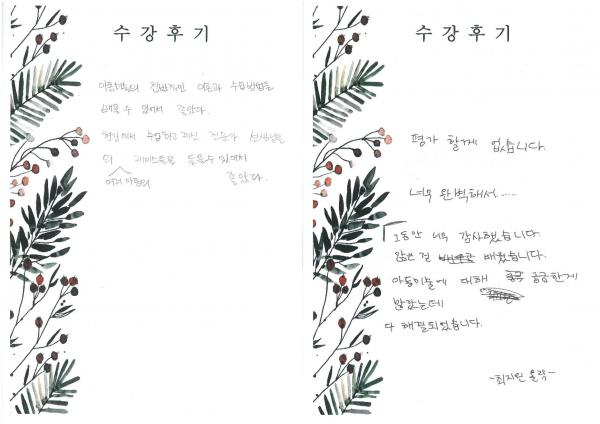 수강후기
아동미술의 전반적인 이론과 수업방법을
배울 수 있어서 좋았다.
현장에서 수업하고 계신 전문가 선생님들
의 여러 아동의 케이스들을 들을수 있어서
좋았다.
수강후기
평가 할게 없습니다.
너무 완벽해서......
그동안 너무 감사했습니다.
많은 걸 배웠습니다.
아동미술에 대해 궁금한게
많았는데
다 해결되었습니다.
-최지원 올림-